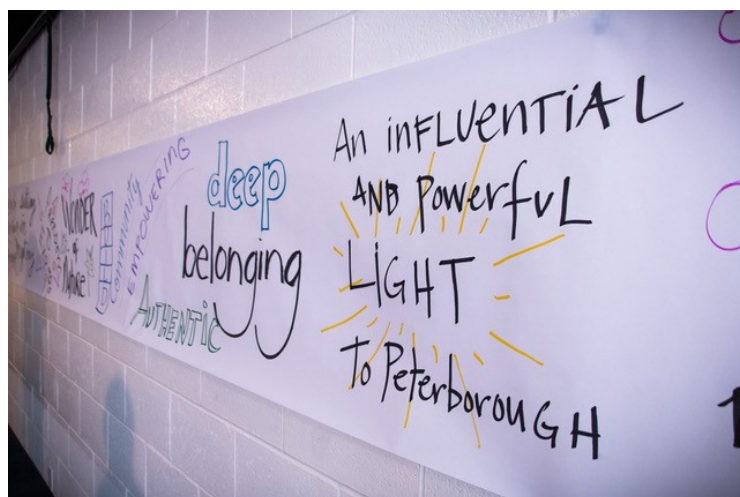 WONDER
of
Nature
Community
EMPOWERING
deep
belonging
AUTHENTIC
An inFLUenTiAL
AND Powerful
LiGHT
To PeterborouGH